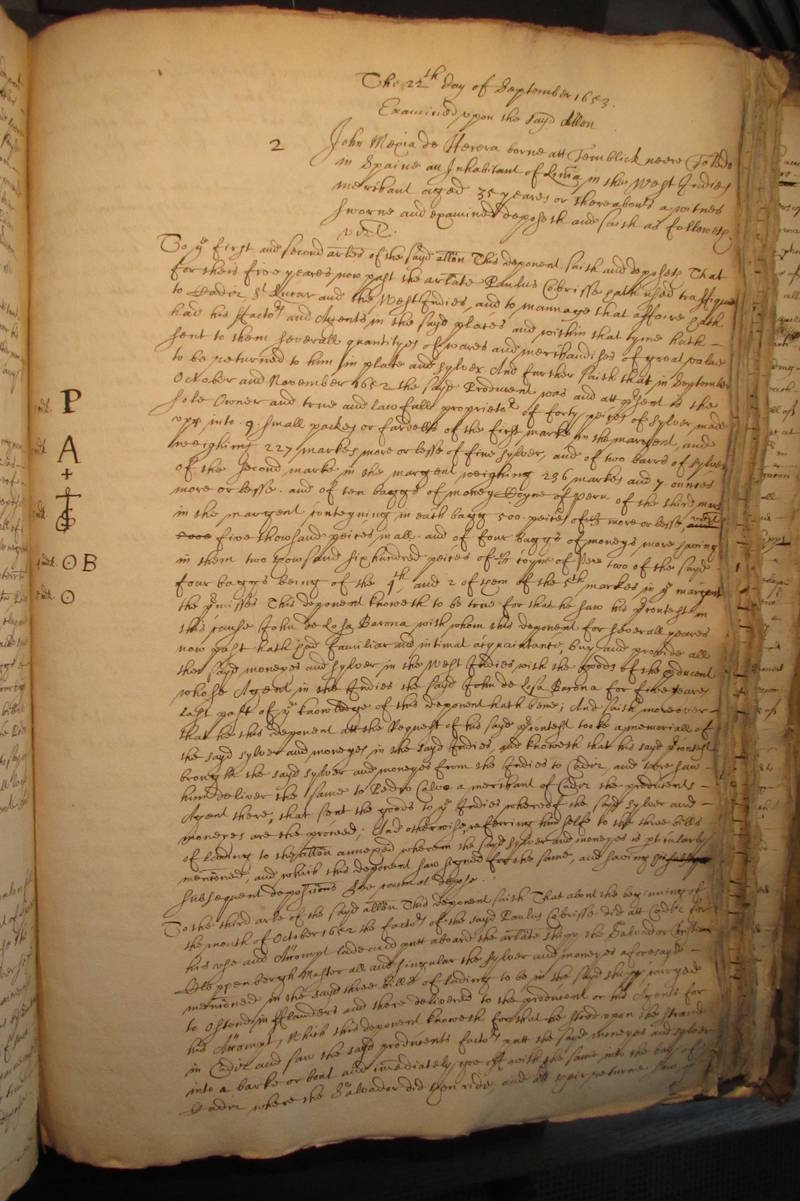 The 22th day of September 1653.
Examined upon the sayd allon
2
John Mexia de Herera borne att Temblick neere Toledo
in Spaine an Inhabitant of Lima in the West Indies
merchant aged 35 yeares or thereabouts a witnes
sworne and examined deposeth and saith as followeth
vizt.
To ye first and second artles of the sayd allon This deponent saith and deposeth That
for theis five yeares now past the arlate Paulus Cobrisse hath used traffique
to Cadiz St Lucar and the West Indies, and to mannage that affaire hath
had his ffactors and Agents in the sayd places and within that tyme hath
sent to them severall quantityes of wares and merchandizes of great value
to be returned to him in plate and sylver And further saith that in September
October and November 1652 the sayd Producent was and att present is the
sole Owner and true and lawfull proprietor of forty peices of sylver made
upp into 9 small packes or fardells of the first marke in the margent, and
weighing 227 markes more or lesse of fine sylver, and of two barrs of sylver
of the second marke in the margent weighing 236 markes and 7 ounces
more or lesse. and of ten baggs of money Coyne of peru of the third marke
in the margent conteyning in each bagg 500 peices of 8/8 more or lesse,
five thowsand peices in all. and of four baggs of moneys more
in them two thowsand six hundred peices of 8/8 coyne of Peru two of the sayd
four baggs being of the 4th, and 2 of them of the 5th markes in ye margent
the premisses This deponent knoweth to be true for that he saw his Contest in
this cause John de Losa Barona with whom this deponent for severall yeares
now past hath had familiar and intimat acquaintance, buy and provide all
the sayd moneyes and sylver in the West Indies with the goods of the producent
whose Agent in the Indies the sayd John de Losa Barona for five yeares
last past of ye knowledge of this deponent hath bene; And saith moreover
that he this deponent att the Request of his sayd Contest tooke a memoriall of
the sayd sylver and moneyes in the sayd Indies, and knoweth that his sayd Contest
brought the sayd sylver and moneyes from the Indies to Cadiz, and there saw
him deliver the same to Pedro Calvo a merchant of Cadiz the producents
Agent there, that sent the goods to ye Indies whereof the sayd sylver and
moneyes are the proceed; And otherwise referring himselfe to the three bills
of lading to the allon annexed wherein the sayd sylver and moneyes is ptcularly
mencioned, and which this deponent saw signed for the same, and saving
subsequent deposicions hee cannot depose.
To the third arle of the sayd allon This deponent saith That about the beginning of
the month of October 1652 the factors of the sayd Paulus Cobrisse did att Cadiz for
his use and Accompt lade and putt aboard the arlate shipp the Salvador
Cloppenbergh Master all and singular the sylver and moneyes aforesayd
mencioned in the sayd three bills of lading to be in the sayd shipp carryed
to Ostend in fflanders and there delivered to the producent or his Agents for
his Accompt, Which this deponent knoweth for that he stood upon the strand
in Cadiz and saw the sayd producents factors putt the sayd moneyes and sylver
into a barke or boat and immediately goe off with the same into the bay of
Cadiz where the Salvador did then ride, and att their returne saw
P
A
OB
O